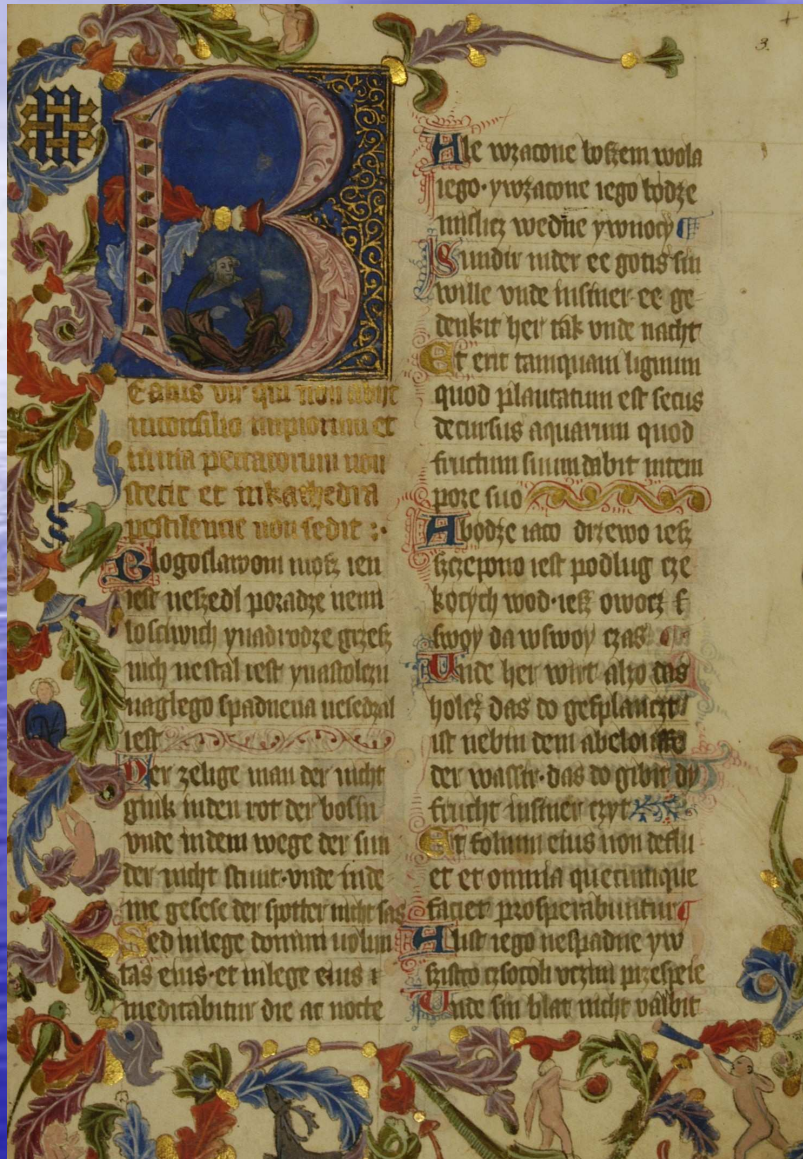 3.
B
Eatus vir qui non abijt
inconsilio impiorum et
inuia peccatorum non
stetit et inkathedra
pestilencie non sedit :·
Blogoslawoni møsz ien
iest neszedl poradze nemi
losciwich ynadrodze grzesz
nich nestal iest ynastolczu
naglego spadnena nesedzal
iest
Der zelige man der nicht
gink inden rot der bosin
vnde indem wege der sun
der nicht stunt·vnde inde
me gesese der spotter nicht sas
Sed inlege domini uolun
tas eius·et inlege eius
meditabitur die ac nocte
Ale wzacone boszem wola
iego·ywzacone iego bodze
mislicz wedne ywnocy
Sundir inder ee gotis sin
wille vnde insiner ee ge
denkit her tak vnde nacht
Et erit tamquam lignum
quod plantatum est secus
decursus aquarum quod
fructum suum dabit intem
pore suo
A bodze iaco drzewo iesz
szczepono iest podlug cze
kocych wod·iesz owocz
swoy da wswoy czas
Unde her wirt alzo das
holcz das do gesplanczt
ist nebin dem abelouffe
der wassir·das do gibit dy
frucht insiner czyt
Et folium eius non deflu
et et omnia quecumque
faciet prosperabuntur
A list iego nespadne yw
szistko czsocoli vczini przespeie
Unde sin blat nicht valbit